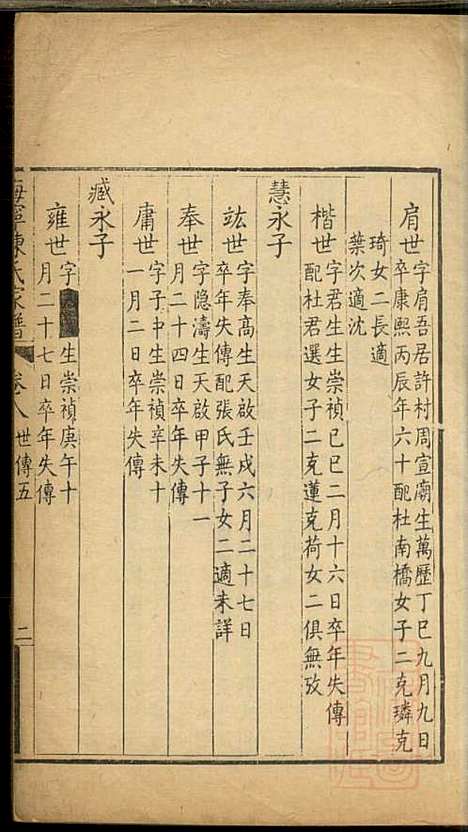 肩世
字肩吾居許村周宣廟生萬歷丁巳九月九日
卒康熙丙辰年六十配杜南橋女子二克璘克
琦女二長適
葉次適沈
楷世
字君生生崇禎己巳二月十六日卒年失傳
配杜君選女子二克蓮克荷女二俱無攷
慧永子
竑世
字奉高生天啟壬戌六月二十七日
卒年失傳配張氏無子女二適未詳
奉世
字隐濤生天啟甲子十一
月二十四日卒年失傳
庸世
字子中生崇禎辛未十
一月二日卒年失傳
臧永子
雍世
字
生崇禎庚午十
月二十七日卒年失傳
海寧陳氏家譜
卷八
世傳五
二